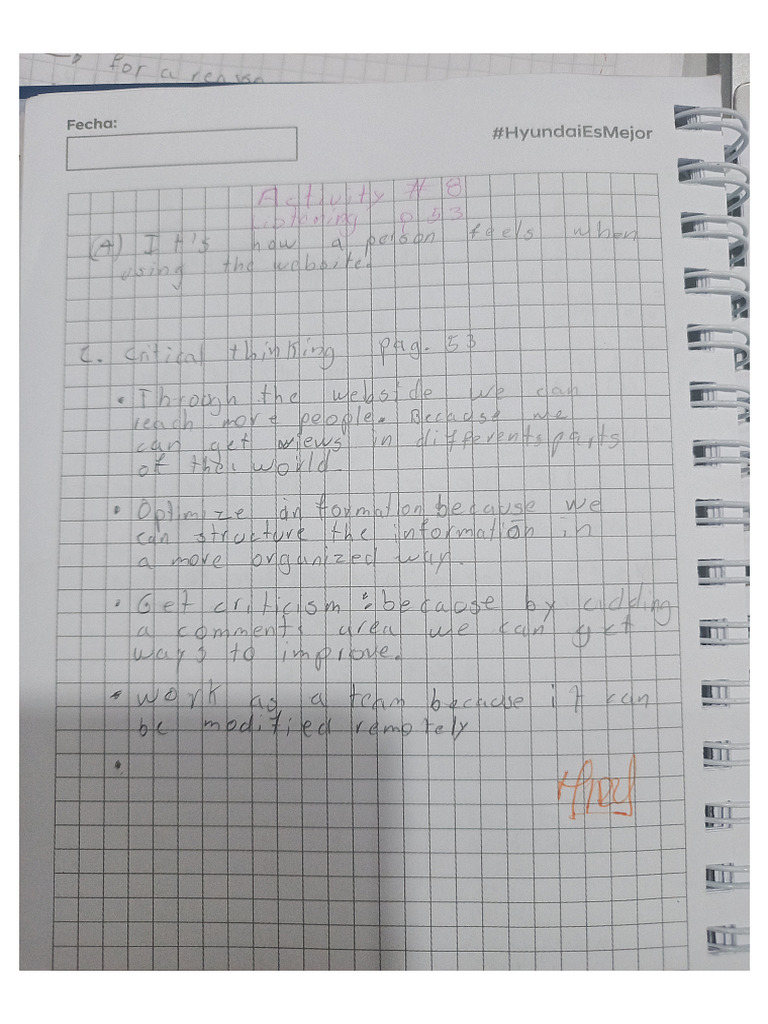 for a reason
Fecha:
#HyundaiEsMejor
Activity # 8
Listening p 53
(A) It's how a person feels when
using the website.
C. Critical thinking pag. 53
• Through the website we can
reach more people. Because we
can get views in differents parts
of the world
• Optimize information because we
can structure the information in
a more organized way.
• Get criticism: because by adding
a comments area we can get
ways to improve.
• Work as a team because it can
be modified remotely
•